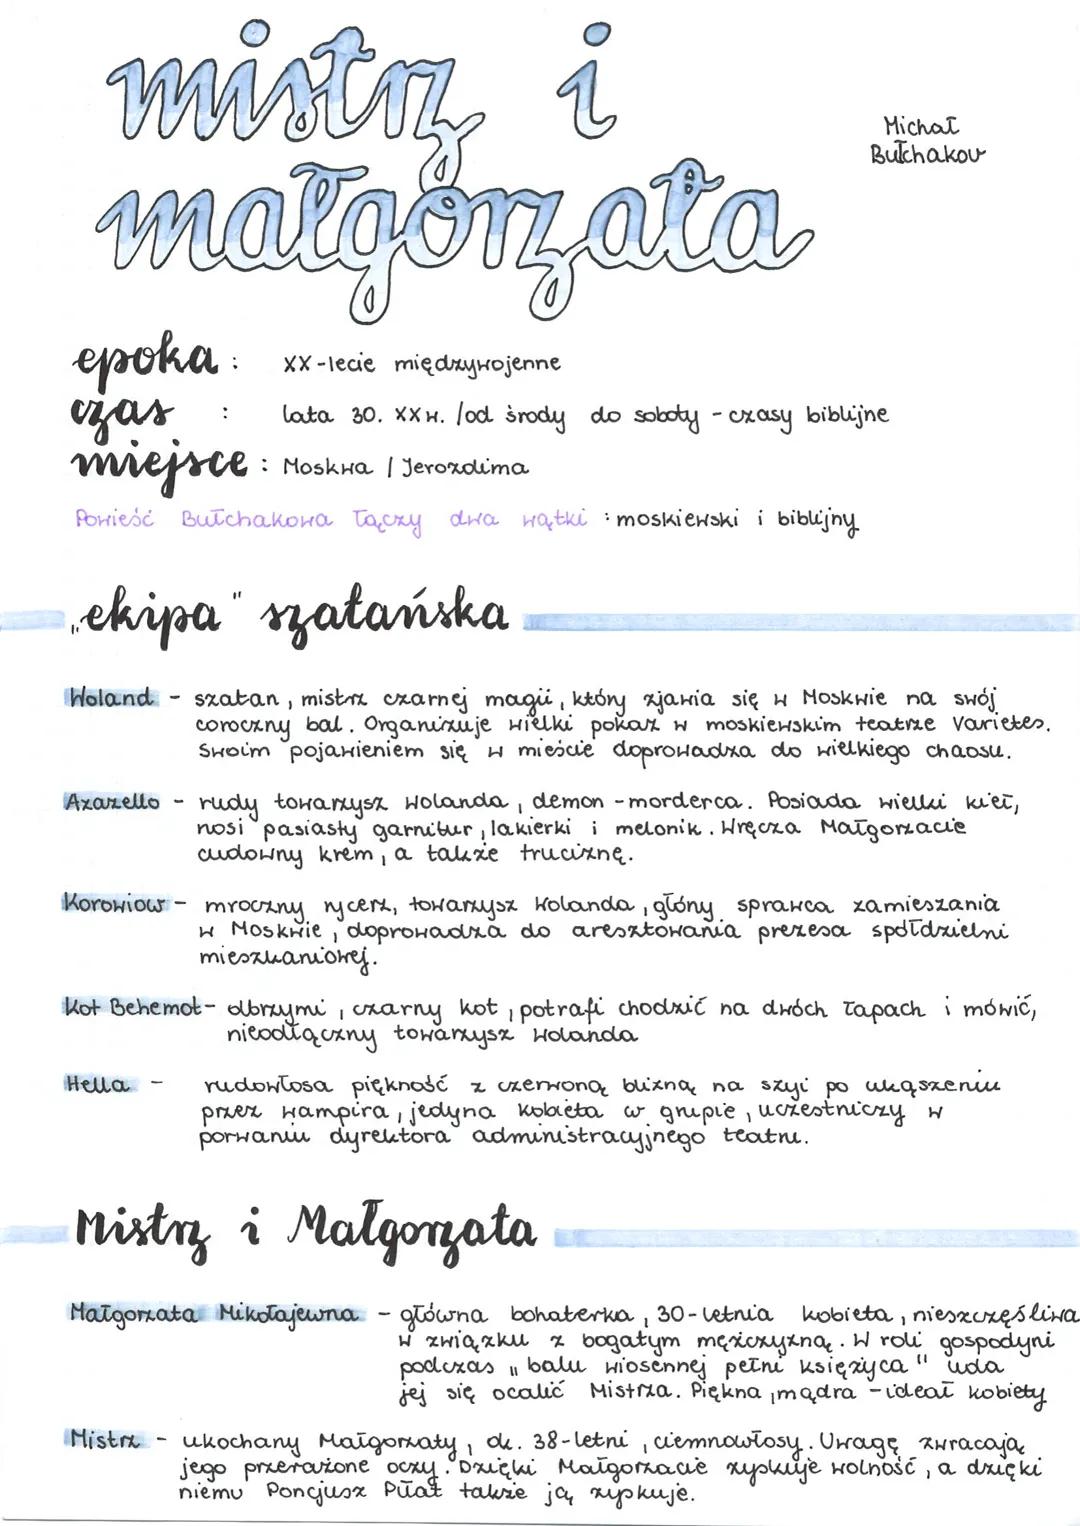 mistrz i
małgorzata
Michał
Bułhakov
epoka : XX-lecie międzywojenne
czas : lata 30. XX w. / od środy do soboty - czasy biblijne
miejsce : Moskwa / Jerozolima
Powieść Bułhakowa łączy dwa wątki : moskiewski i biblijny
„ekipa" szatańska
Woland - szatan, mistrz czarnej magii, który zjawia się w Moskwie na swój
coroczny bal. Organizuje wielki pokaz w moskiewskim teatrze Varietes.
Swoim pojawieniem się w mieście doprowadza do wielkiego chaosu.
Azazello - rudy towarzysz Wolanda, demon - morderca. Posiada wielki kieł,
nosi pasiasty garnitur, lakierki i melonik. Wręcza Małgorzacie
cudowny krem, a także truciznę.
Korowiow - mroczny rycerz, towarzysz Wolanda, głóny sprawca zamieszania
w Moskwie, doprowadza do aresztowania prezesa spółdzielni
mieszkaniowej.
Kot Behemot - olbrzymi, czarny kot, potrafi chodzić na dwóch łapach i mówić,
nieodłączny towarzysz Wolanda
Hella - rudowłosa piękność z czerwoną blizną na szyi po ukąszeniu
przez wampira, jedyna kobieta w grupie, uczestniczy w
porwaniu dyrektora administracyjnego teatru.
Mistrz i Małgorzata
Małgorzata Mikołajewna - główna bohaterka, 30-letnia kobieta, nieszczęśliwa
w związku z bogatym mężczyzną. W roli gospodyni
podczas „balu wiosennej pełni księżyca" uda
jej się ocalić Mistrza. Piękna, mądra - ideał kobiety
Mistrz - ukochany Małgorzaty, ok. 38-letni, ciemnowłosy. Uwagę zwracają
jego przerażone oczy. Dzięki Małgorzacie zyskuje wolność, a dzięki
niemu Poncjusz Piłat także ją zyskuje.